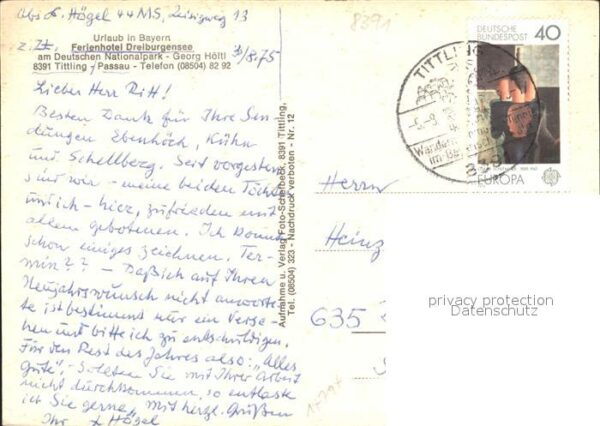 Abs. H. Högel 44 MS, Zeisigweg 13
z. Zt.
Urlaub in Bayern
Ferienhotel Dreiburgensee
am Deutschen Nationalpark - Georg Höltl
8391 Tittling / Passau - Telefon (08504) 82 92
3/8.75
Lieber Herr Ritt!
Besten Dank für Ihre Sen
dungen Ebenhöch, Kühn
und Schellberg. Seit vorgestern
sind wir - meine beiden Töchter
und ich - hier, zufrieden mit
allem gebotenen. Ich konnte
schon einiges zeichnen. Ter-
min?? - Daß ich auf Ihren
Neujahrswunsch nicht antworte-
te ist bestimmt nur ein Verse-
hen und bitte ich zu entschuldigen.
Für den Rest des Jahres also: "Alles
Gute". Sollten Sie mit Ihrer Arbeit
nicht durchkommen, so entlaste
ich Sie gerne, mit herzl. Grüßen
Ihr H Högel
Aufnahme u. Verlag Foto-Schelbeck, 8391 Tittling,
Tel. (08504) 323 - Nachdruck verboten - Nr. 12
8391
DEUTSCHE
BUNDESPOST
40
EUROPA
TITTLING
Herrn
Heinz
635
privacy protection
Datenschutz